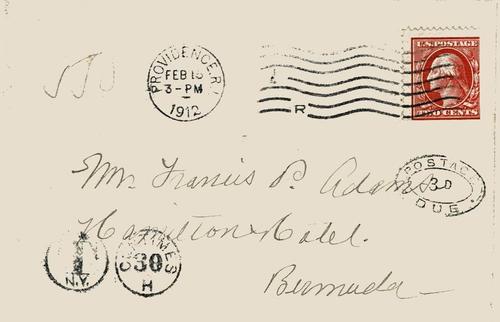 PROVIDENCE, R.I.
FEB 15
3-PM
1912
R
U.S. POSTAGE
TWO CENTS
POSTAGE
3D
DUE
Mr. Francis P. Adams
Hamilton Hotel.
Bermuda
1
N.Y.
CENTIMES
30
H